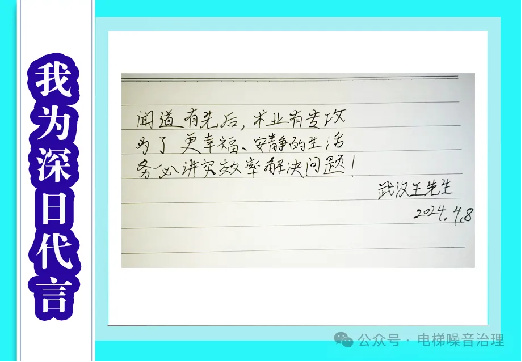 我为深日代言
闻道有先后,术业有专攻
为了更幸福、安静的生活
务必讲究效率解决问题!
武汉王先生
2024.4.8
公众号·电梯噪音治理